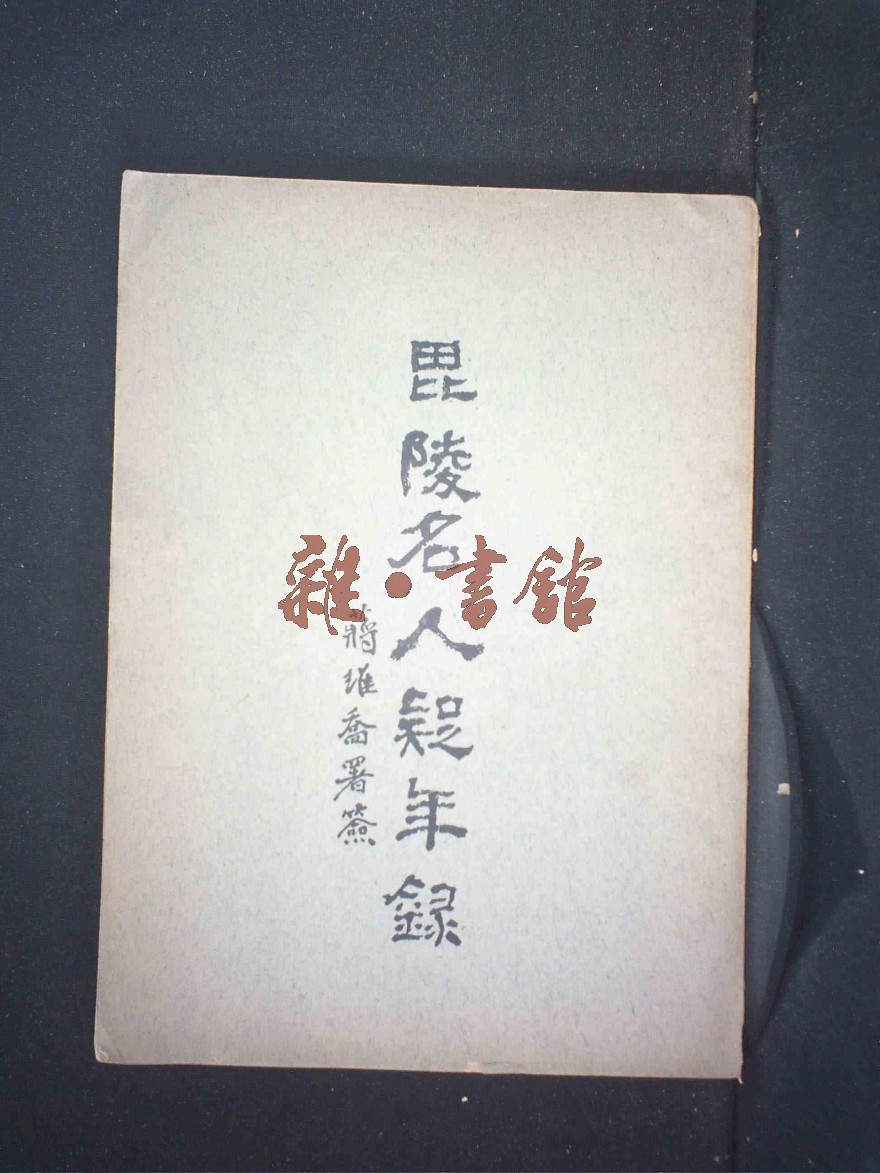 毘陵名人疑年録
蔣維喬署簽
雜·書館